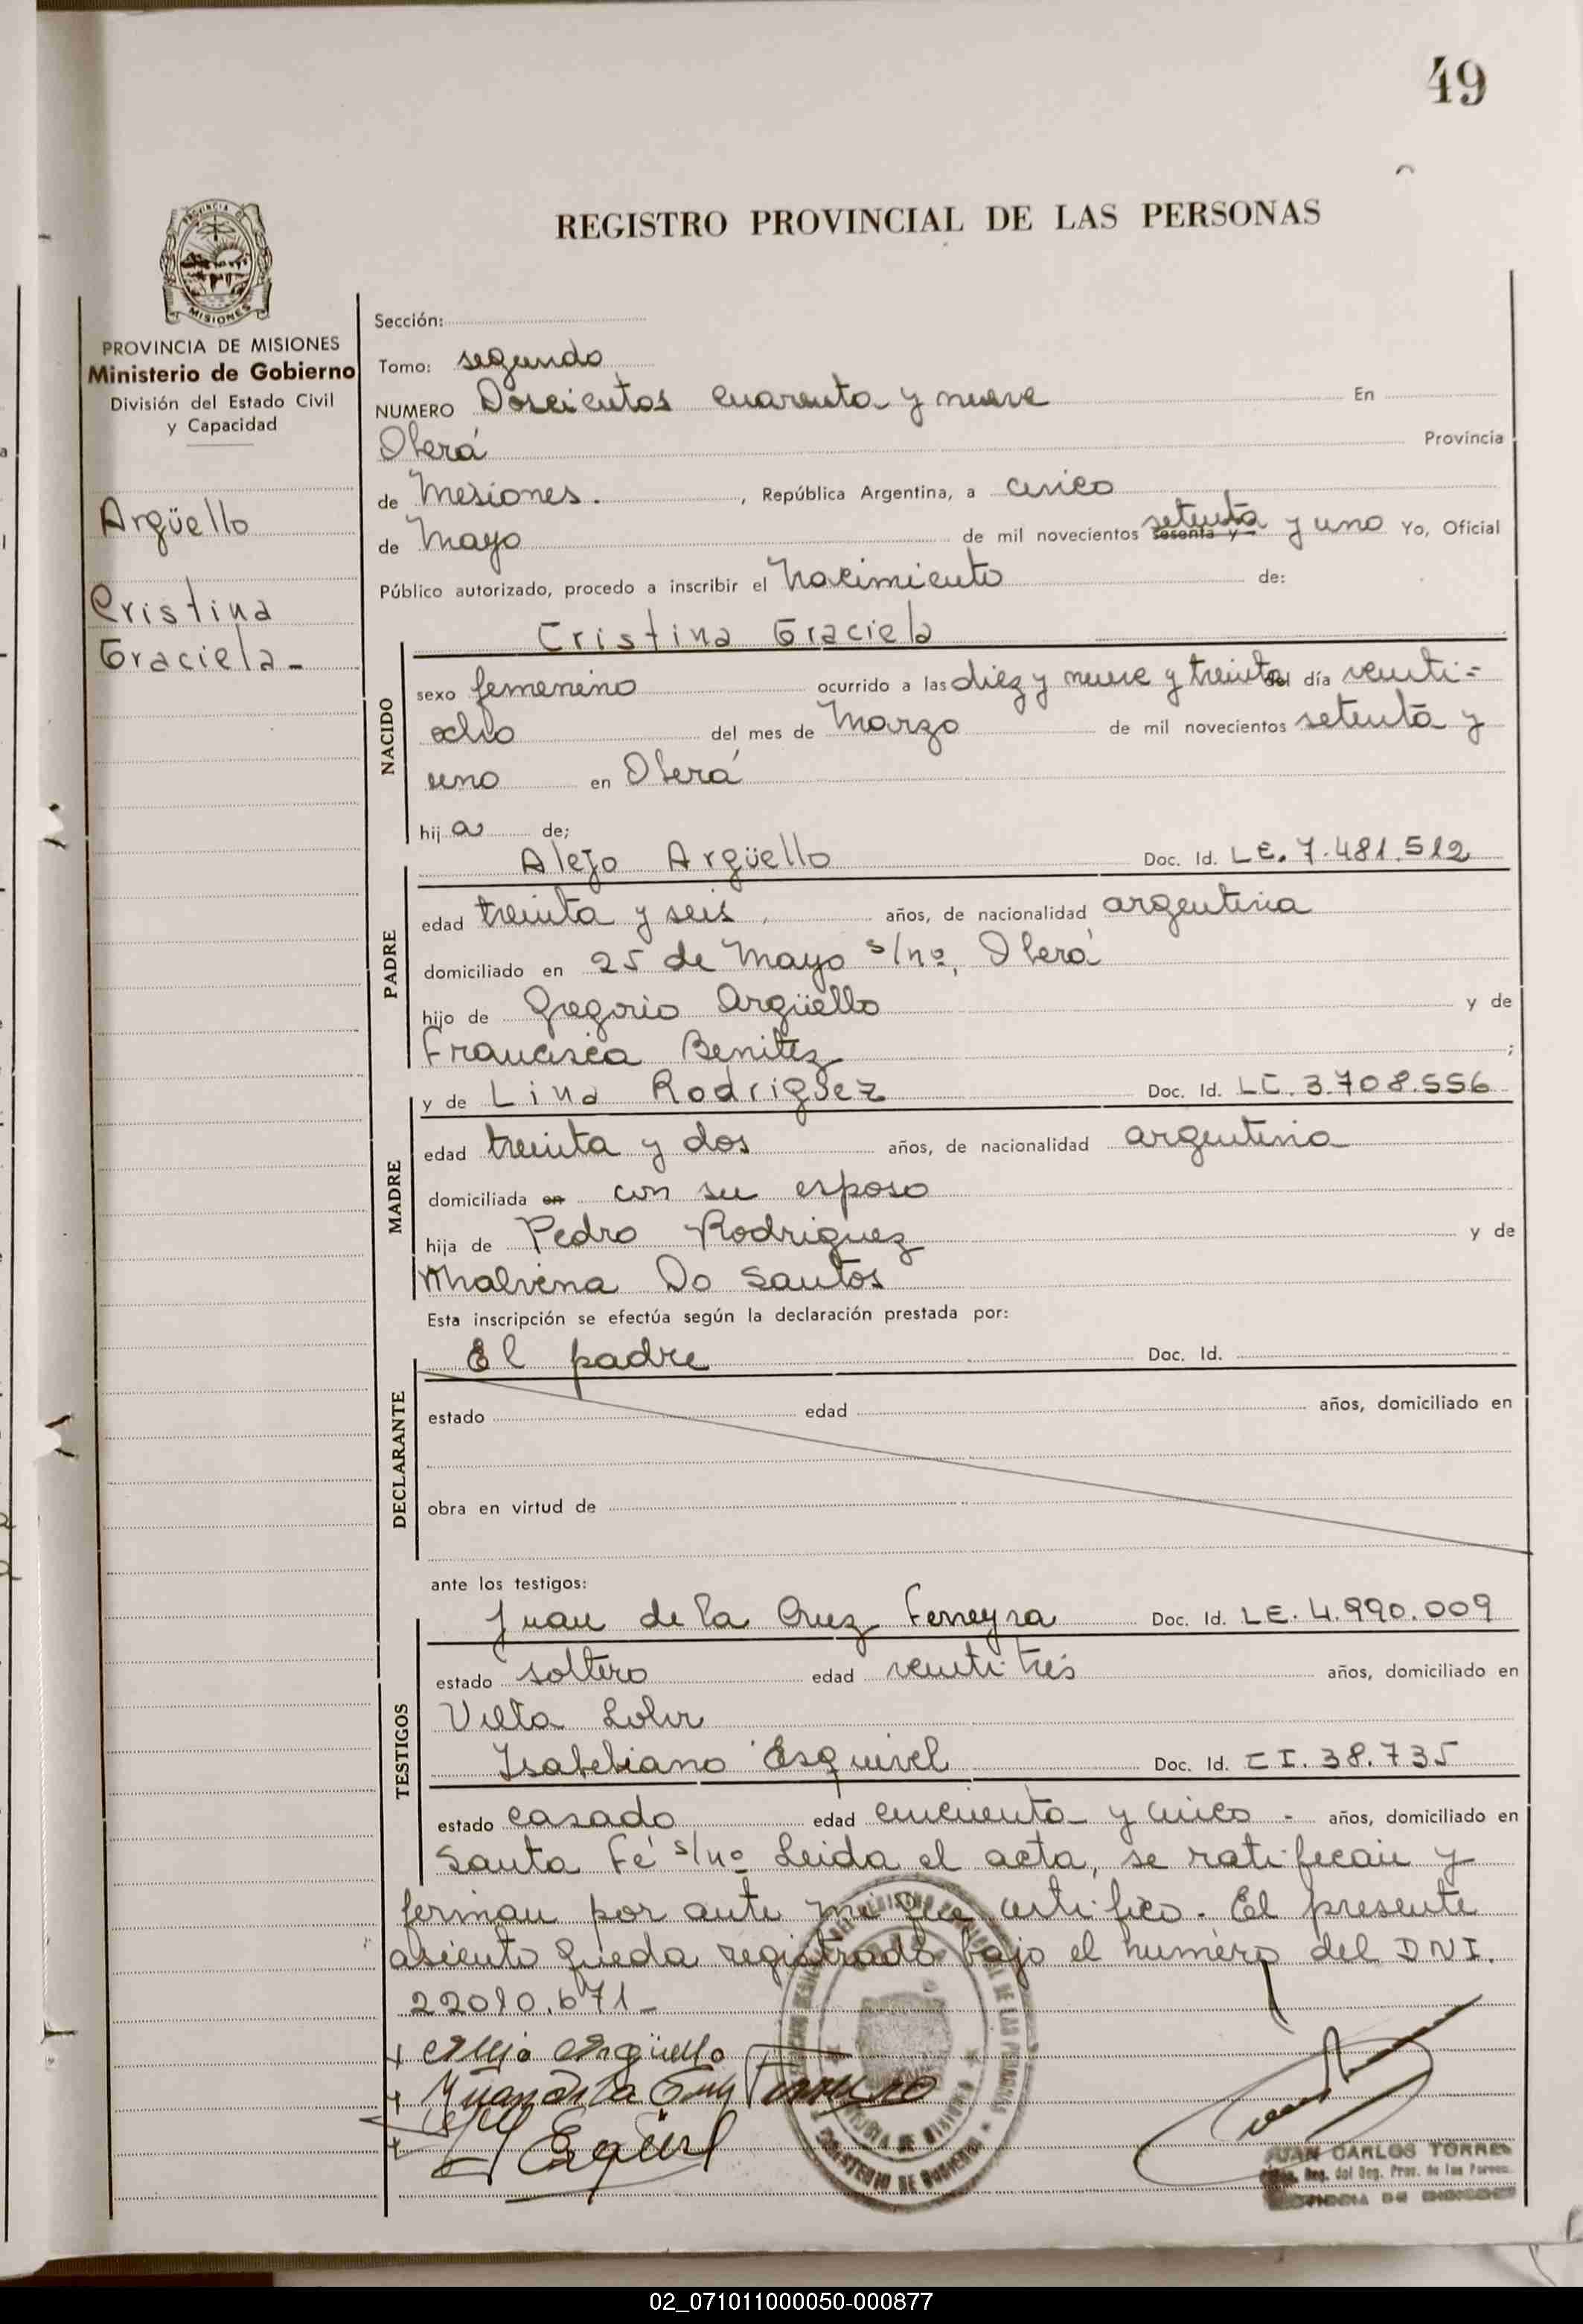 49
REGISTRO PROVINCIAL DE LAS PERSONAS
MISIONES
PROVINCIA DE MISIONES
Ministerio de Gobierno
División del Estado Civil
y Capacidad
Argüello
Cristina
Graciela-
Sección:
Tomo: segundo
NUMERO Doscientos cuarenta y nueve En
Oberá Provincia
de Misiones. , República Argentina, a cinco
de Mayo de mil novecientos sesenta y setenta y uno Yo, Oficial
Público autorizado, procedo a inscribir el Nacimiento de:
Cristina Graciela
NACIDO
sexo femenino ocurrido a las diez y nueve y treinta del día veinti=
ocho del mes de Marzo de mil novecientos setenta y
uno en Oberá
hija de;
Alejo Argüello Doc. Id. LE. 7.481.512
PADRE
edad treinta y seis, años, de nacionalidad argentina
domiciliado en 25 de Mayo s/nº, Oberá
hijo de Gregorio Argüello y de
Francisca Benitez ;
y de Lina Rodriguez Doc. Id. LC. 3.708.556
MADRE
edad treinta y dos años, de nacionalidad argentina
domiciliada en con su esposo
hija de Pedro Rodriguez y de
Malvina Do Santos
Esta inscripción se efectúa según la declaración prestada por:
El padre Doc. Id.
DECLARANTE
estado edad años, domiciliado en
obra en virtud de
ante los testigos:
Juan de la Cruz Ferreyra Doc. Id. LE. 4.990.009
TESTIGOS
estado soltero edad veinti tres años, domiciliado en
Villa
Isabeliano Esquivel Doc. Id. CI. 38.735
estado casado edad cincuenta y cinco - años, domiciliado en
Santa Fé s/nº Leida el acta, se ratifican y
firman por ante mi que certifico. El presente
asiento queda registrado bajo el numero del DNI.
22010.671-
Alejo Argüello
Juan de la Cruz
Esquivel
JUAN CARLOS TORRES
Reg. del Reg. Prov. de las Person.
PROVINCIA DE MISIONES
02_071011000050-000877